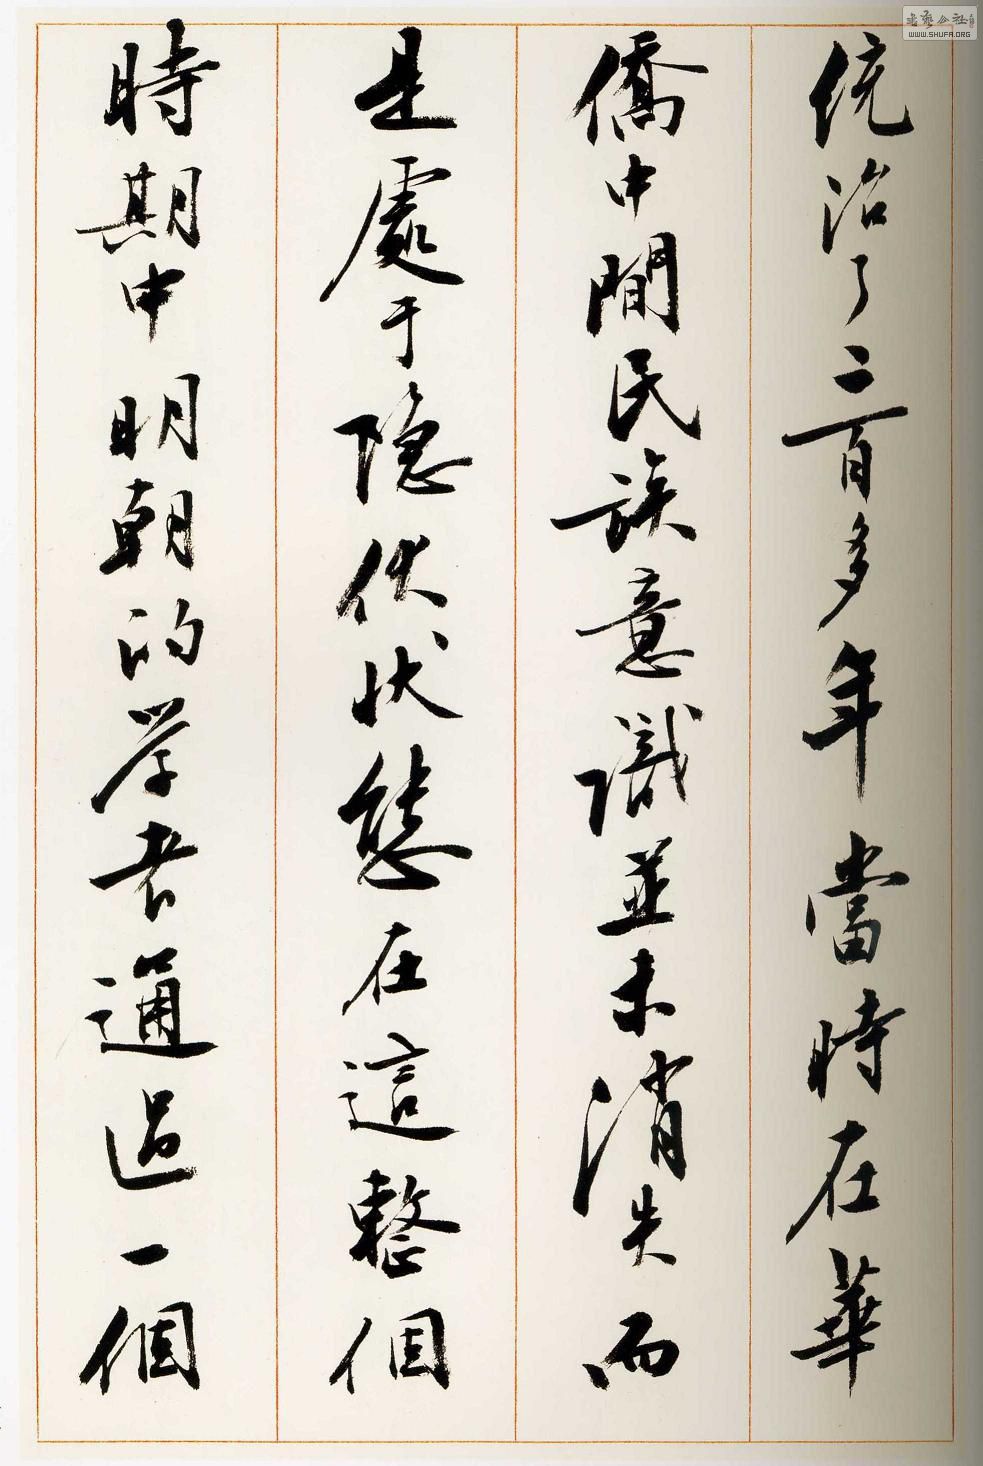 統治了二百多年當時在華
僑中間民族意識並未消失而
是處于隱伏狀態在這整個
時期中明朝的学者通過一個
书艺公社
WWW.SHUFA.ORG